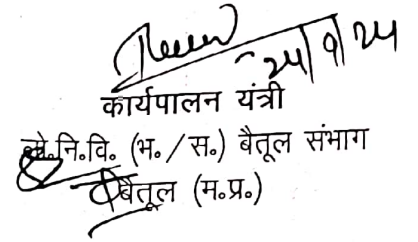 24/9/24
कार्यपालन यंत्री
लो.नि.वि. (भ./स.) बैतूल संभाग
बैतूल (म.प्र.)